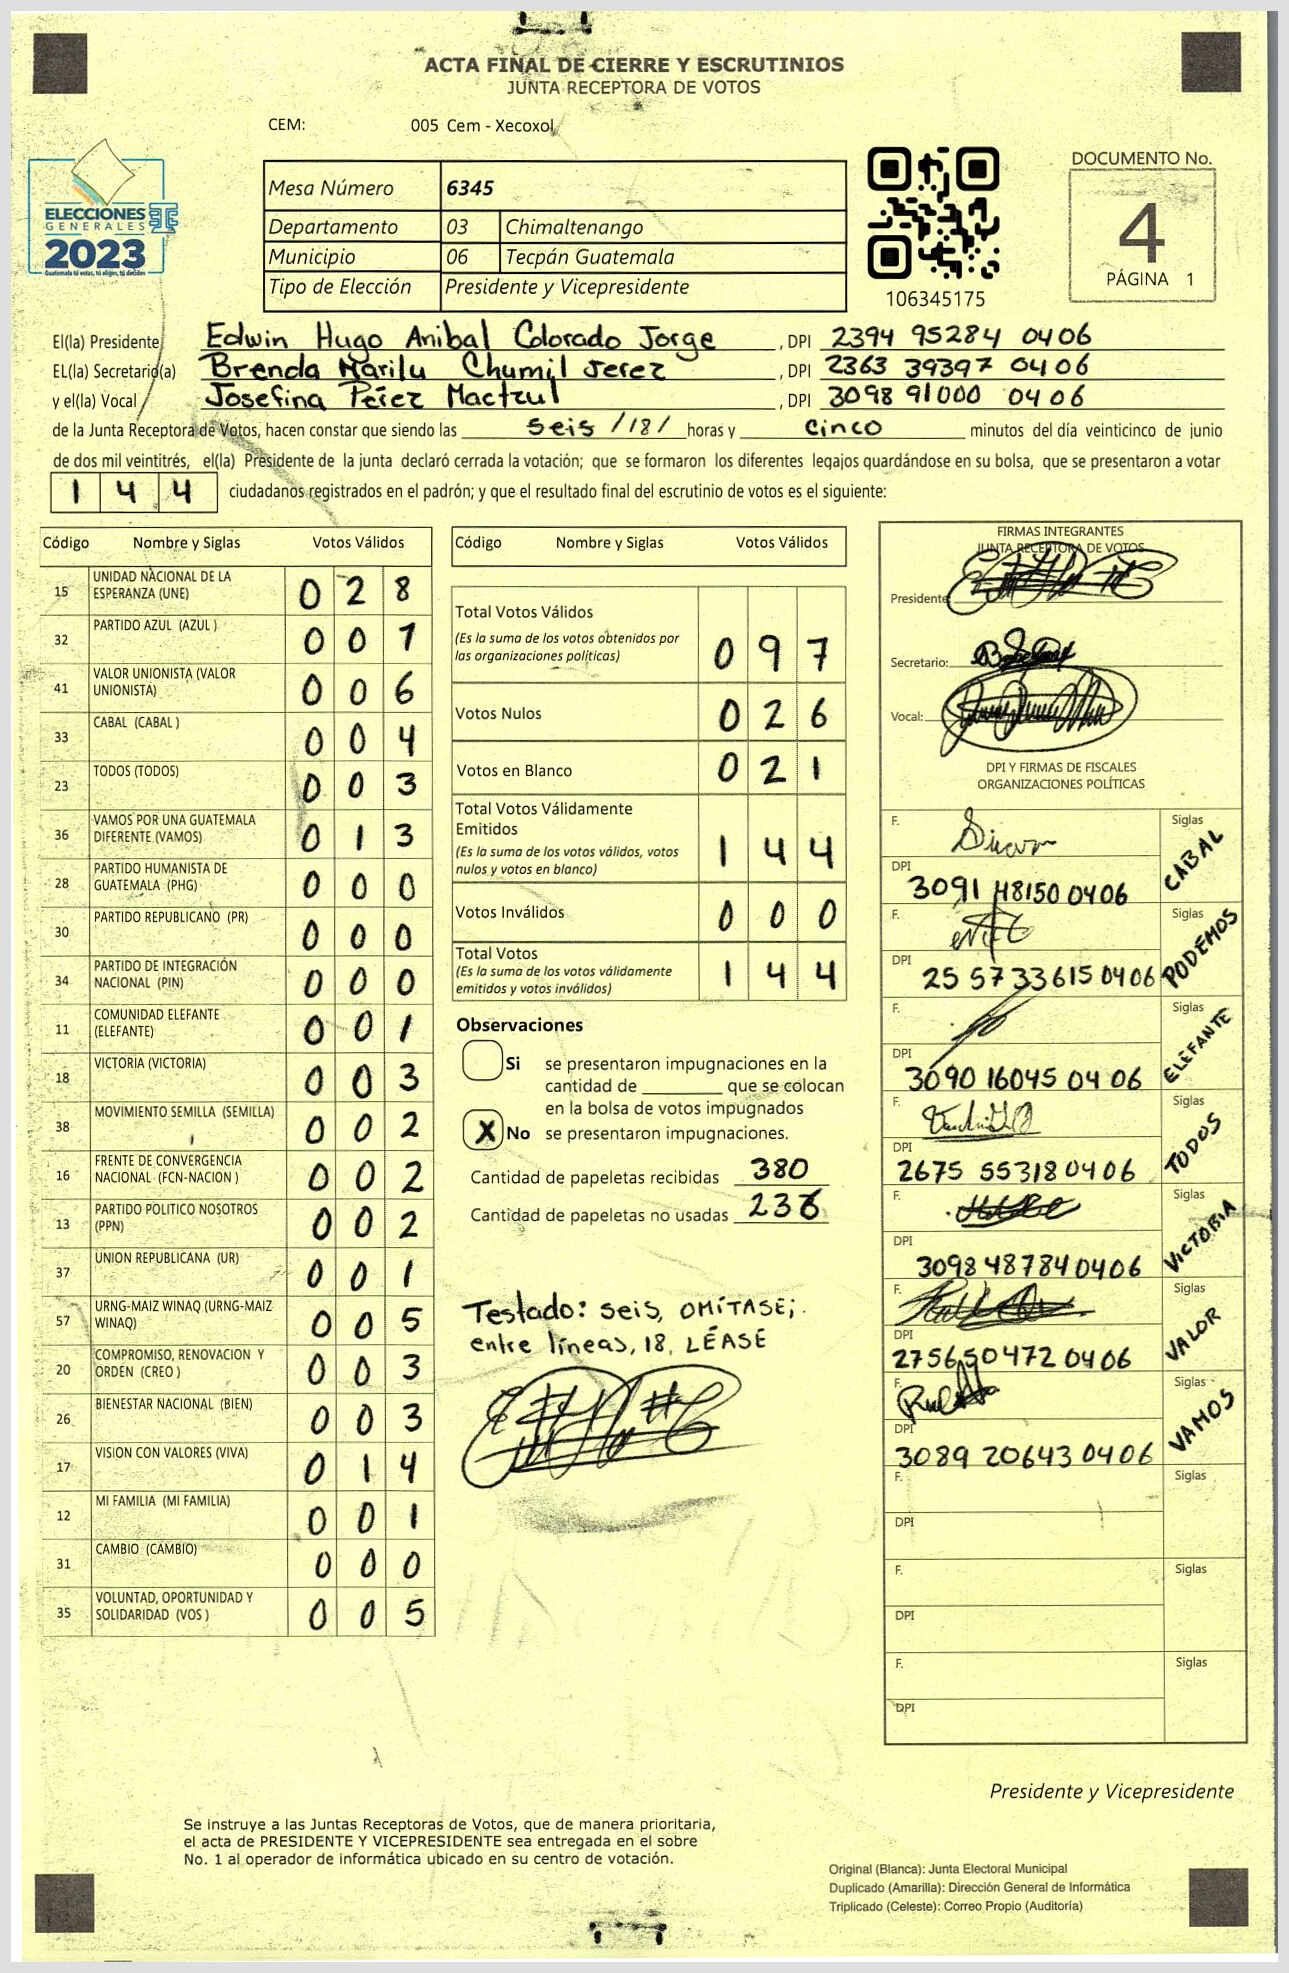 ACTA FINAL DE CIERRE Y ESCRUTINIOS
JUNTA RECEPTORA DE VOTOS
CEM: 005 Cem - Xecoxol
ELECCIONES
GENERALES
2023
Guatemala tú votas, tú eliges, tú decides
Mesa Número 6345
Departamento 03 Chimaltenango
Municipio 06 Tecpán Guatemala
Tipo de Elección Presidente y Vicepresidente
106345175
DOCUMENTO No.
4
PÁGINA 1
El(la) Presidente Edwin Hugo Anibal Colorado Jorge , DPI 2394 95284 0406
EL(la) Secretario(a) Brenda Marilu Chumil Jerez , DPI 2363 39397 0406
y el(la) Vocal Josefina Pérez Mactzul , DPI 3098 91000 0406
de la Junta Receptora de Votos, hacen constar que siendo las seis /18/ horas y cinco minutos del día veinticinco de junio
de dos mil veintitrés, el(la) Presidente de la junta declaró cerrada la votación; que se formaron los diferentes legajos guardándose en su bolsa, que se presentaron a votar
1 4 4 ciudadanos registrados en el padrón; y que el resultado final del escrutinio de votos es el siguiente:
Código Nombre y Siglas Votos Válidos
15 UNIDAD NACIONAL DE LA ESPERANZA (UNE) 0 2 8
32 PARTIDO AZUL (AZUL ) 0 0 1
41 VALOR UNIONISTA (VALOR UNIONISTA) 0 0 6
33 CABAL (CABAL ) 0 0 4
23 TODOS (TODOS) 0 0 3
36 VAMOS POR UNA GUATEMALA DIFERENTE (VAMOS) 0 1 3
28 PARTIDO HUMANISTA DE GUATEMALA (PHG) 0 0 0
30 PARTIDO REPUBLICANO (PR) 0 0 0
34 PARTIDO DE INTEGRACIÓN NACIONAL (PIN) 0 0 0
11 COMUNIDAD ELEFANTE (ELEFANTE) 0 0 1
18 VICTORIA (VICTORIA) 0 0 3
38 MOVIMIENTO SEMILLA (SEMILLA) 0 0 2
16 FRENTE DE CONVERGENCIA NACIONAL (FCN-NACION ) 0 0 2
13 PARTIDO POLITICO NOSOTROS (PPN) 0 0 2
37 UNION REPUBLICANA (UR) 0 0 1
57 URNG-MAIZ WINAQ (URNG-MAIZ WINAQ) 0 0 5
20 COMPROMISO, RENOVACION Y ORDEN (CREO ) 0 0 3
26 BIENESTAR NACIONAL (BIEN) 0 0 3
17 VISION CON VALORES (VIVA) 0 1 4
12 MI FAMILIA (MI FAMILIA) 0 0 1
31 CAMBIO (CAMBIO) 0 0 0
35 VOLUNTAD, OPORTUNIDAD Y SOLIDARIDAD (VOS ) 0 0 5
Código Nombre y Siglas Votos Válidos
Total Votos Válidos
(Es la suma de los votos obtenidos por
las organizaciones políticas) 0 9 7
Votos Nulos 0 2 6
Votos en Blanco 0 2 1
Total Votos Válidamente
Emitidos
(Es la suma de los votos válidos, votos
nulos y votos en blanco) 1 4 4
Votos Inválidos 0 0 0
Total Votos
(Es la suma de los votos válidamente
emitidos y votos inválidos) 1 4 4
Observaciones
Si se presentaron impugnaciones en la
cantidad de ________ que se colocan
en la bolsa de votos impugnados
X No se presentaron impugnaciones.
Cantidad de papeletas recibidas 380
Cantidad de papeletas no usadas 236
Testado: seis, OMÍTASE;
entre líneas, 18, LÉASE
FIRMAS INTEGRANTES
JUNTA RECEPTORA DE VOTOS
Presidente:
Secretario:
Vocal:
DPI Y FIRMAS DE FISCALES
ORGANIZACIONES POLÍTICAS
F. Siglas CABAL
DPI 3091 48150 0406
F. Siglas PODEMOS
DPI 25 57 33615 0406
F. Siglas ELEFANTE
DPI 3090 16045 04 06
F. Siglas TODOS
DPI 2675 55318 0406
F. Siglas VICTORIA
DPI 3098 48784 0406
F. Siglas VALOR
DPI 2756 50472 0406
F. Siglas VAMOS
DPI 3089 20643 0406
F. Siglas
DPI
F. Siglas
DPI
F. Siglas
DPI
Presidente y Vicepresidente
Se instruye a las Juntas Receptoras de Votos, que de manera prioritaria,
el acta de PRESIDENTE Y VICEPRESIDENTE sea entregada en el sobre
No. 1 al operador de informática ubicado en su centro de votación.
Original (Blanca): Junta Electoral Municipal
Duplicado (Amarilla): Dirección General de Informática
Triplicado (Celeste): Correo Propio (Auditoría)